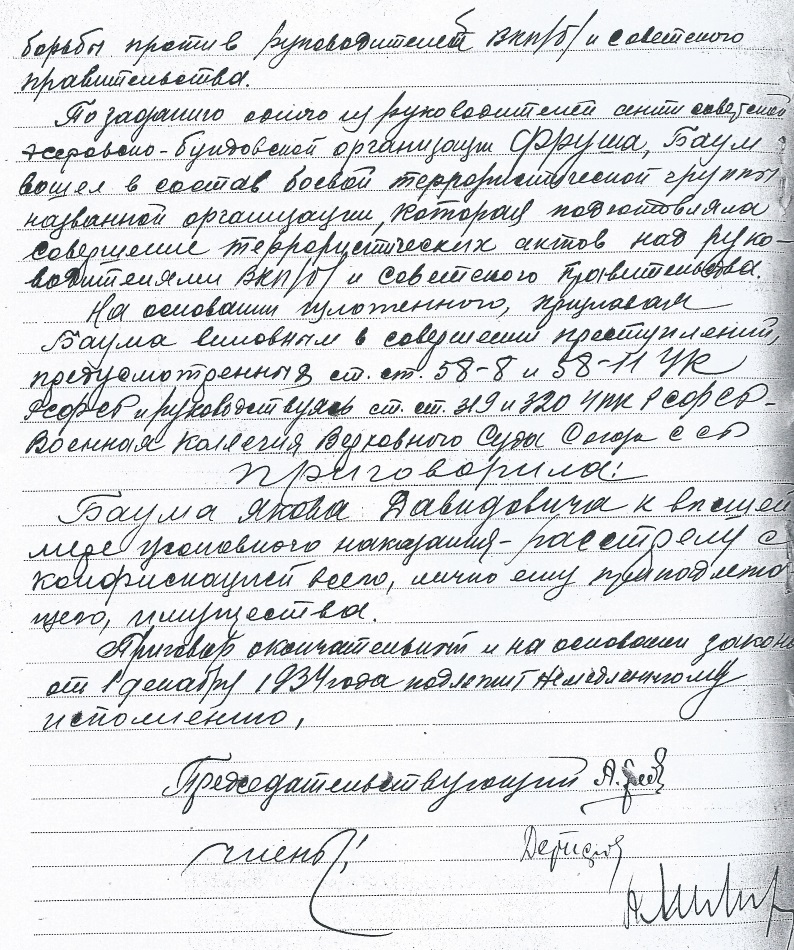 борьбы против руководителей ВКП/б/ и советского
правительства.
По заданию одного из руководителей антисоветской
эсеровско-бундовской организации Фруша, Баум
вошел в состав боевой террористической группы
названной организации, которая подготовляла
совершение террористических актов над руко-
водителями ВКП/б/ и советского правительства.
На основании изложенного, признавая
Баума виновным в совершении преступлений,
предусмотренных ст. ст. 58-8 и 58-11 УК
РСФСР и руководствуясь ст. ст. 319 и 320 УПК РСФСР-
Военная Коллегия Верховного Суда Союза ССР
приговорила:
Баума Якова Давидовича к высшей
мере уголовного наказания - расстрелу с
конфискацией всего, лично ему принадлежа-
щего, имущества.
Приговор окончательный и на основании закона
от 1 декабря 1934 года подлежит немедленному
исполнению.
Председательствующий
Члены: